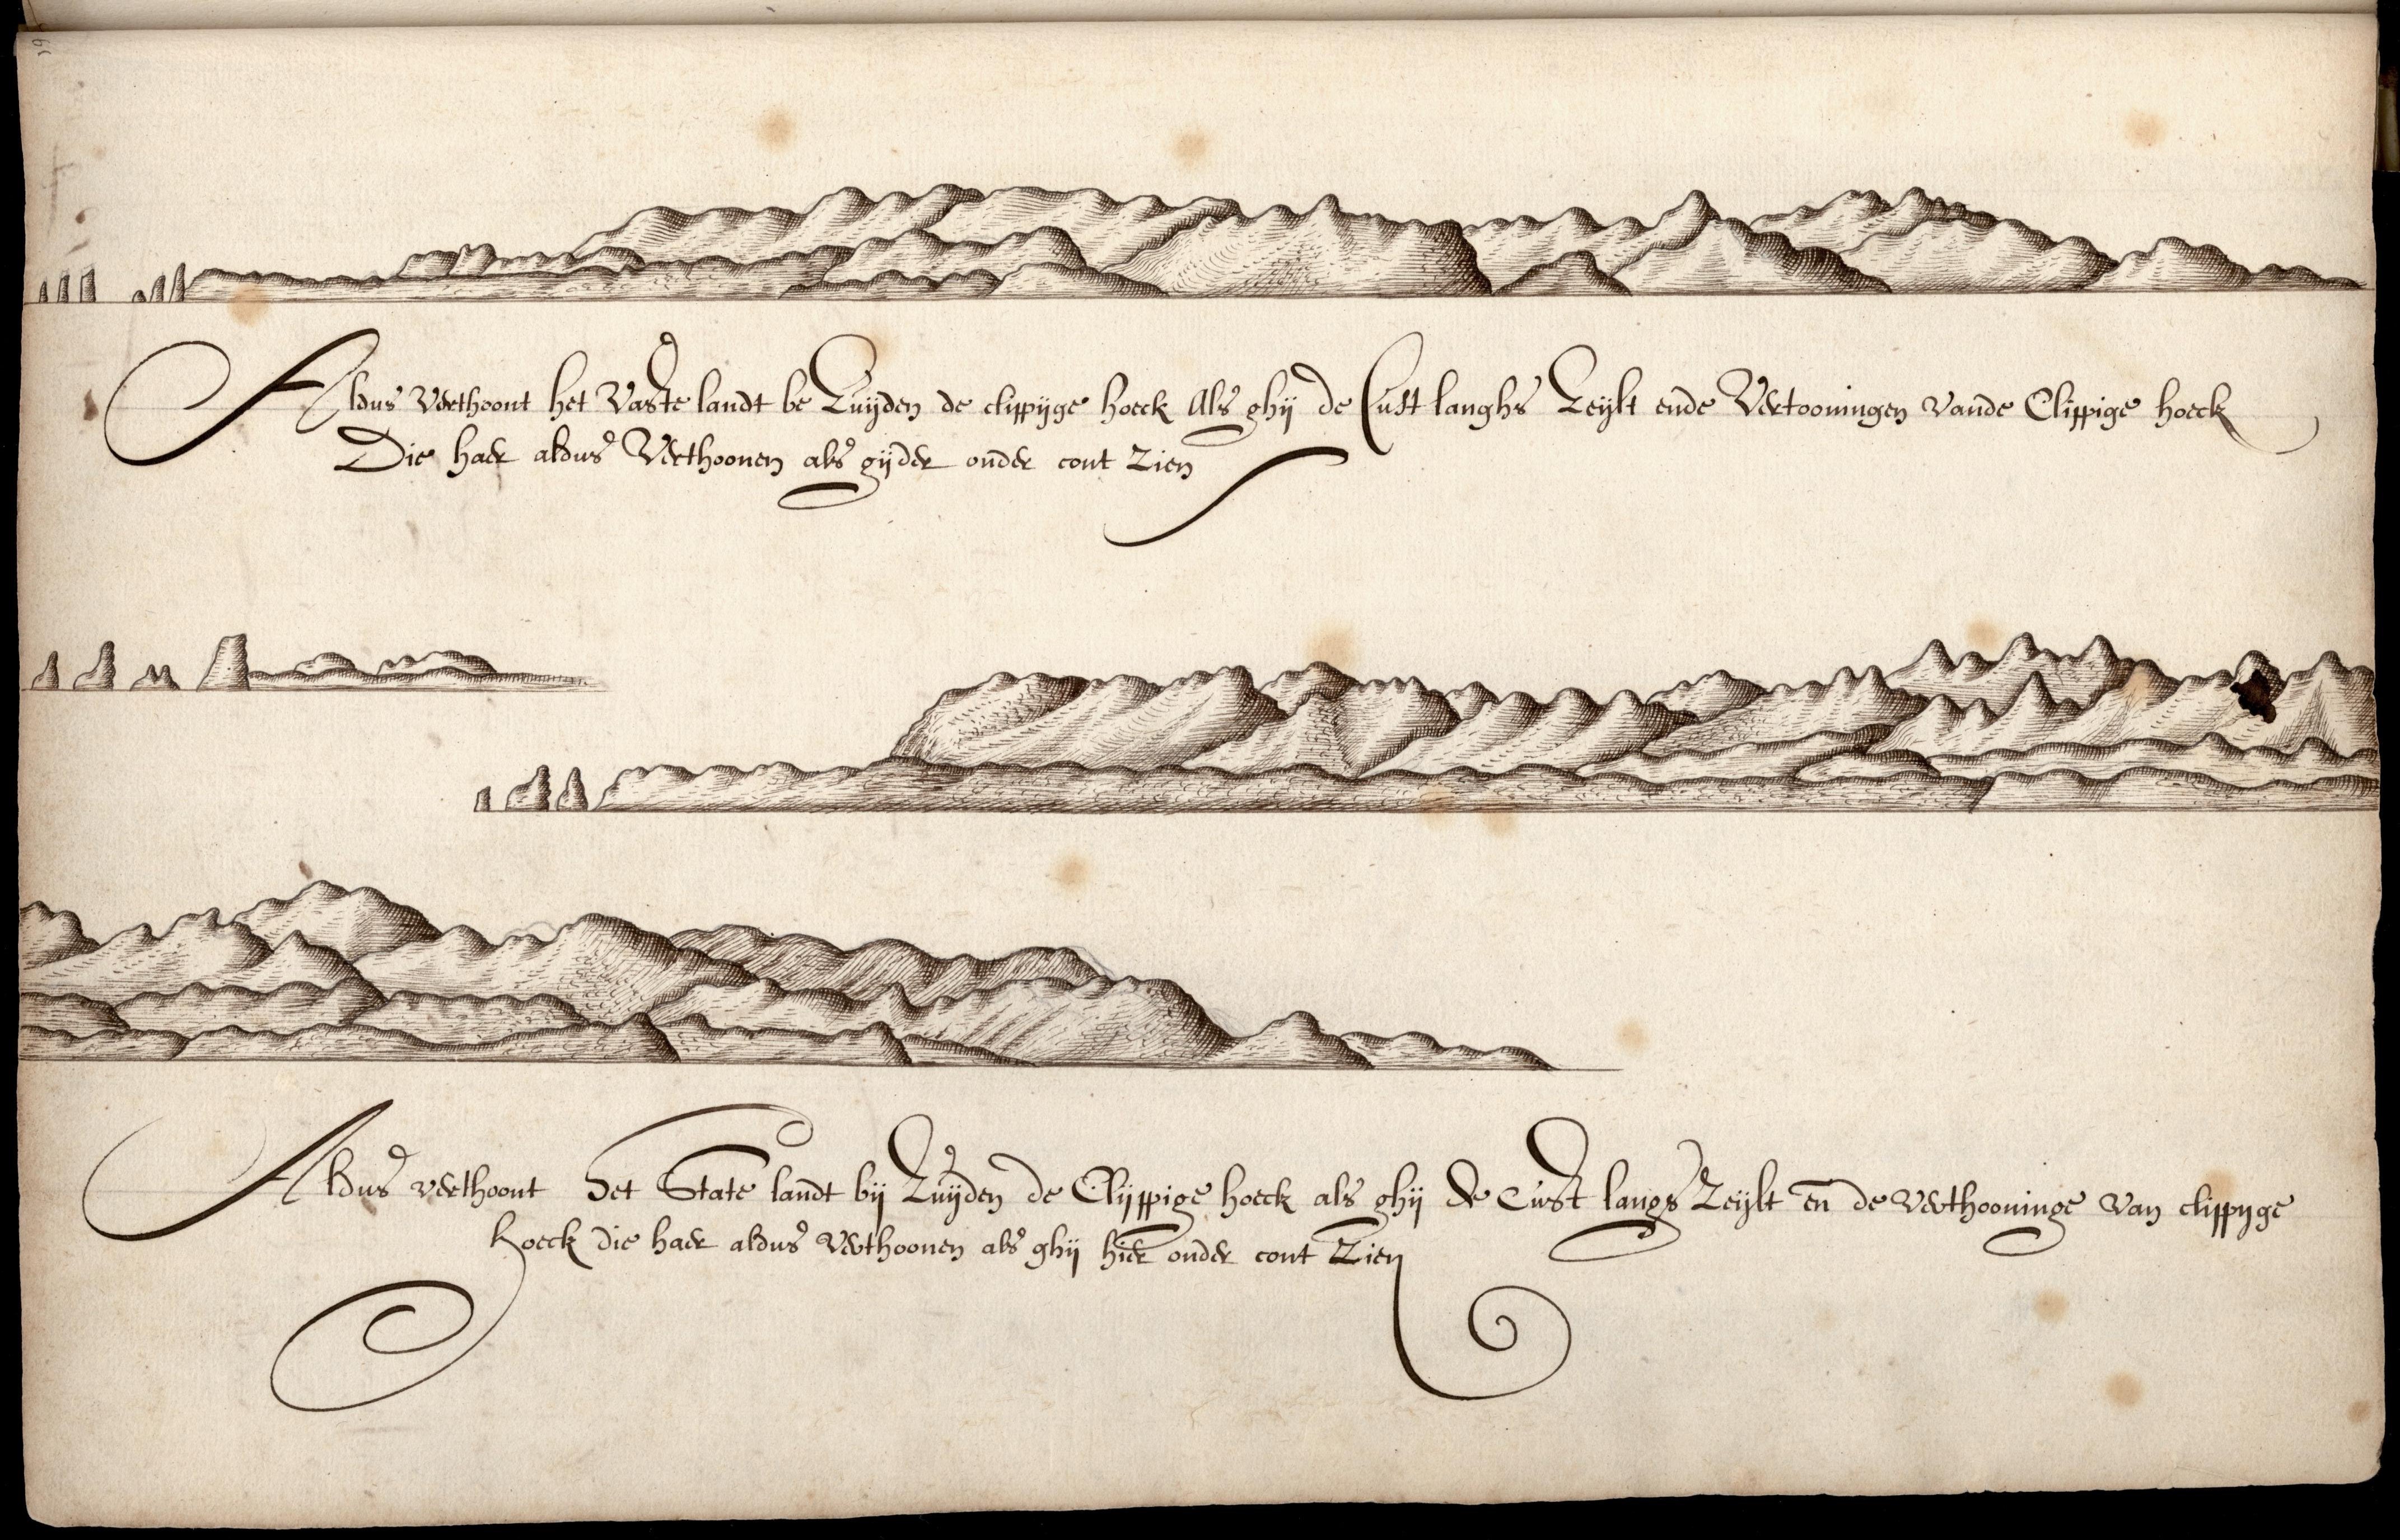 39
Aldus Verthoont het Vaste landt be Zuijden de clippijge hoeck Als ghij de Cust langhs Zeijlt ende Vertooningen vande Clippige hoeck
Die haer aldus Verthoonen als gijder onder cont Zien
Aldus verthoont Het State landt bij Zuijden de Clijppige hoeck als ghij de Cust langs Zeijlt en de verthooninge van clippyge
hoeck die haer aldus verthoonen als ghij hier onder cont Zien